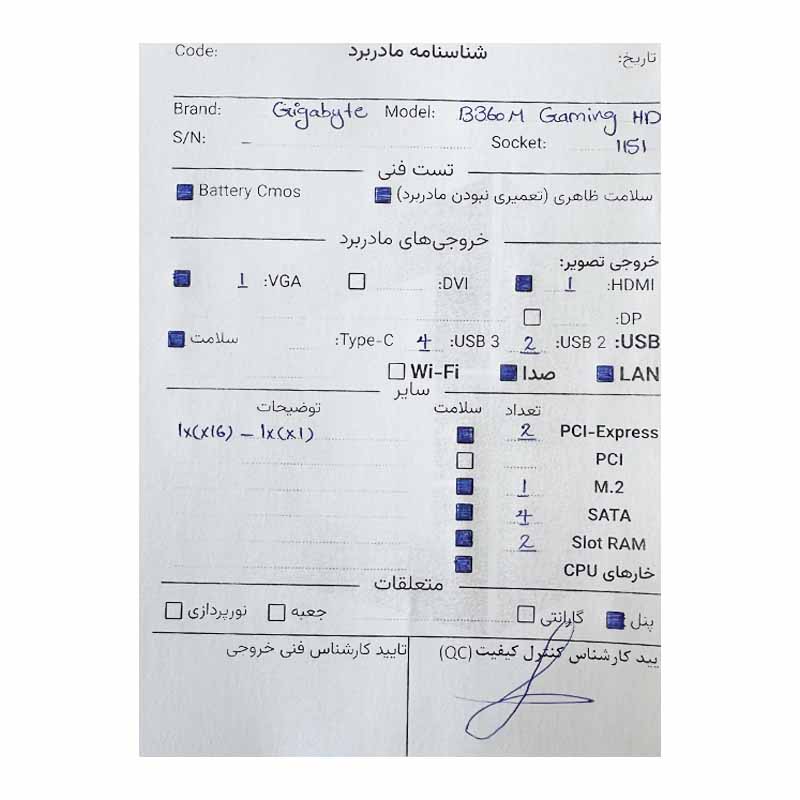 Code: شناسنامه مادربرد تاریخ:
Brand: Gigabyte Model: B360M Gaming HD
S/N: – Socket: 1151
تست فنی
سلامت ظاهری (تعمیری نبودن مادربرد) Battery Cmos
خروجی‌های مادربرد
خروجی تصویر:
HDMI: 1 DVI: VGA: 1
DP:
USB: USB 2: 2 USB 3: 4 Type-C: سلامت
LAN صدا Wi-Fi
سایر
تعداد سلامت توضیحات
PCI-Express 2 1x(x16) – 1x(x1)
PCI
M.2 1
SATA 4
Slot RAM 2
خارهای CPU
متعلقات
پنل گارانتی جعبه نورپردازی
یید کارشناس کنترل کیفیت (QC) تایید کارشناس فنی خروجی